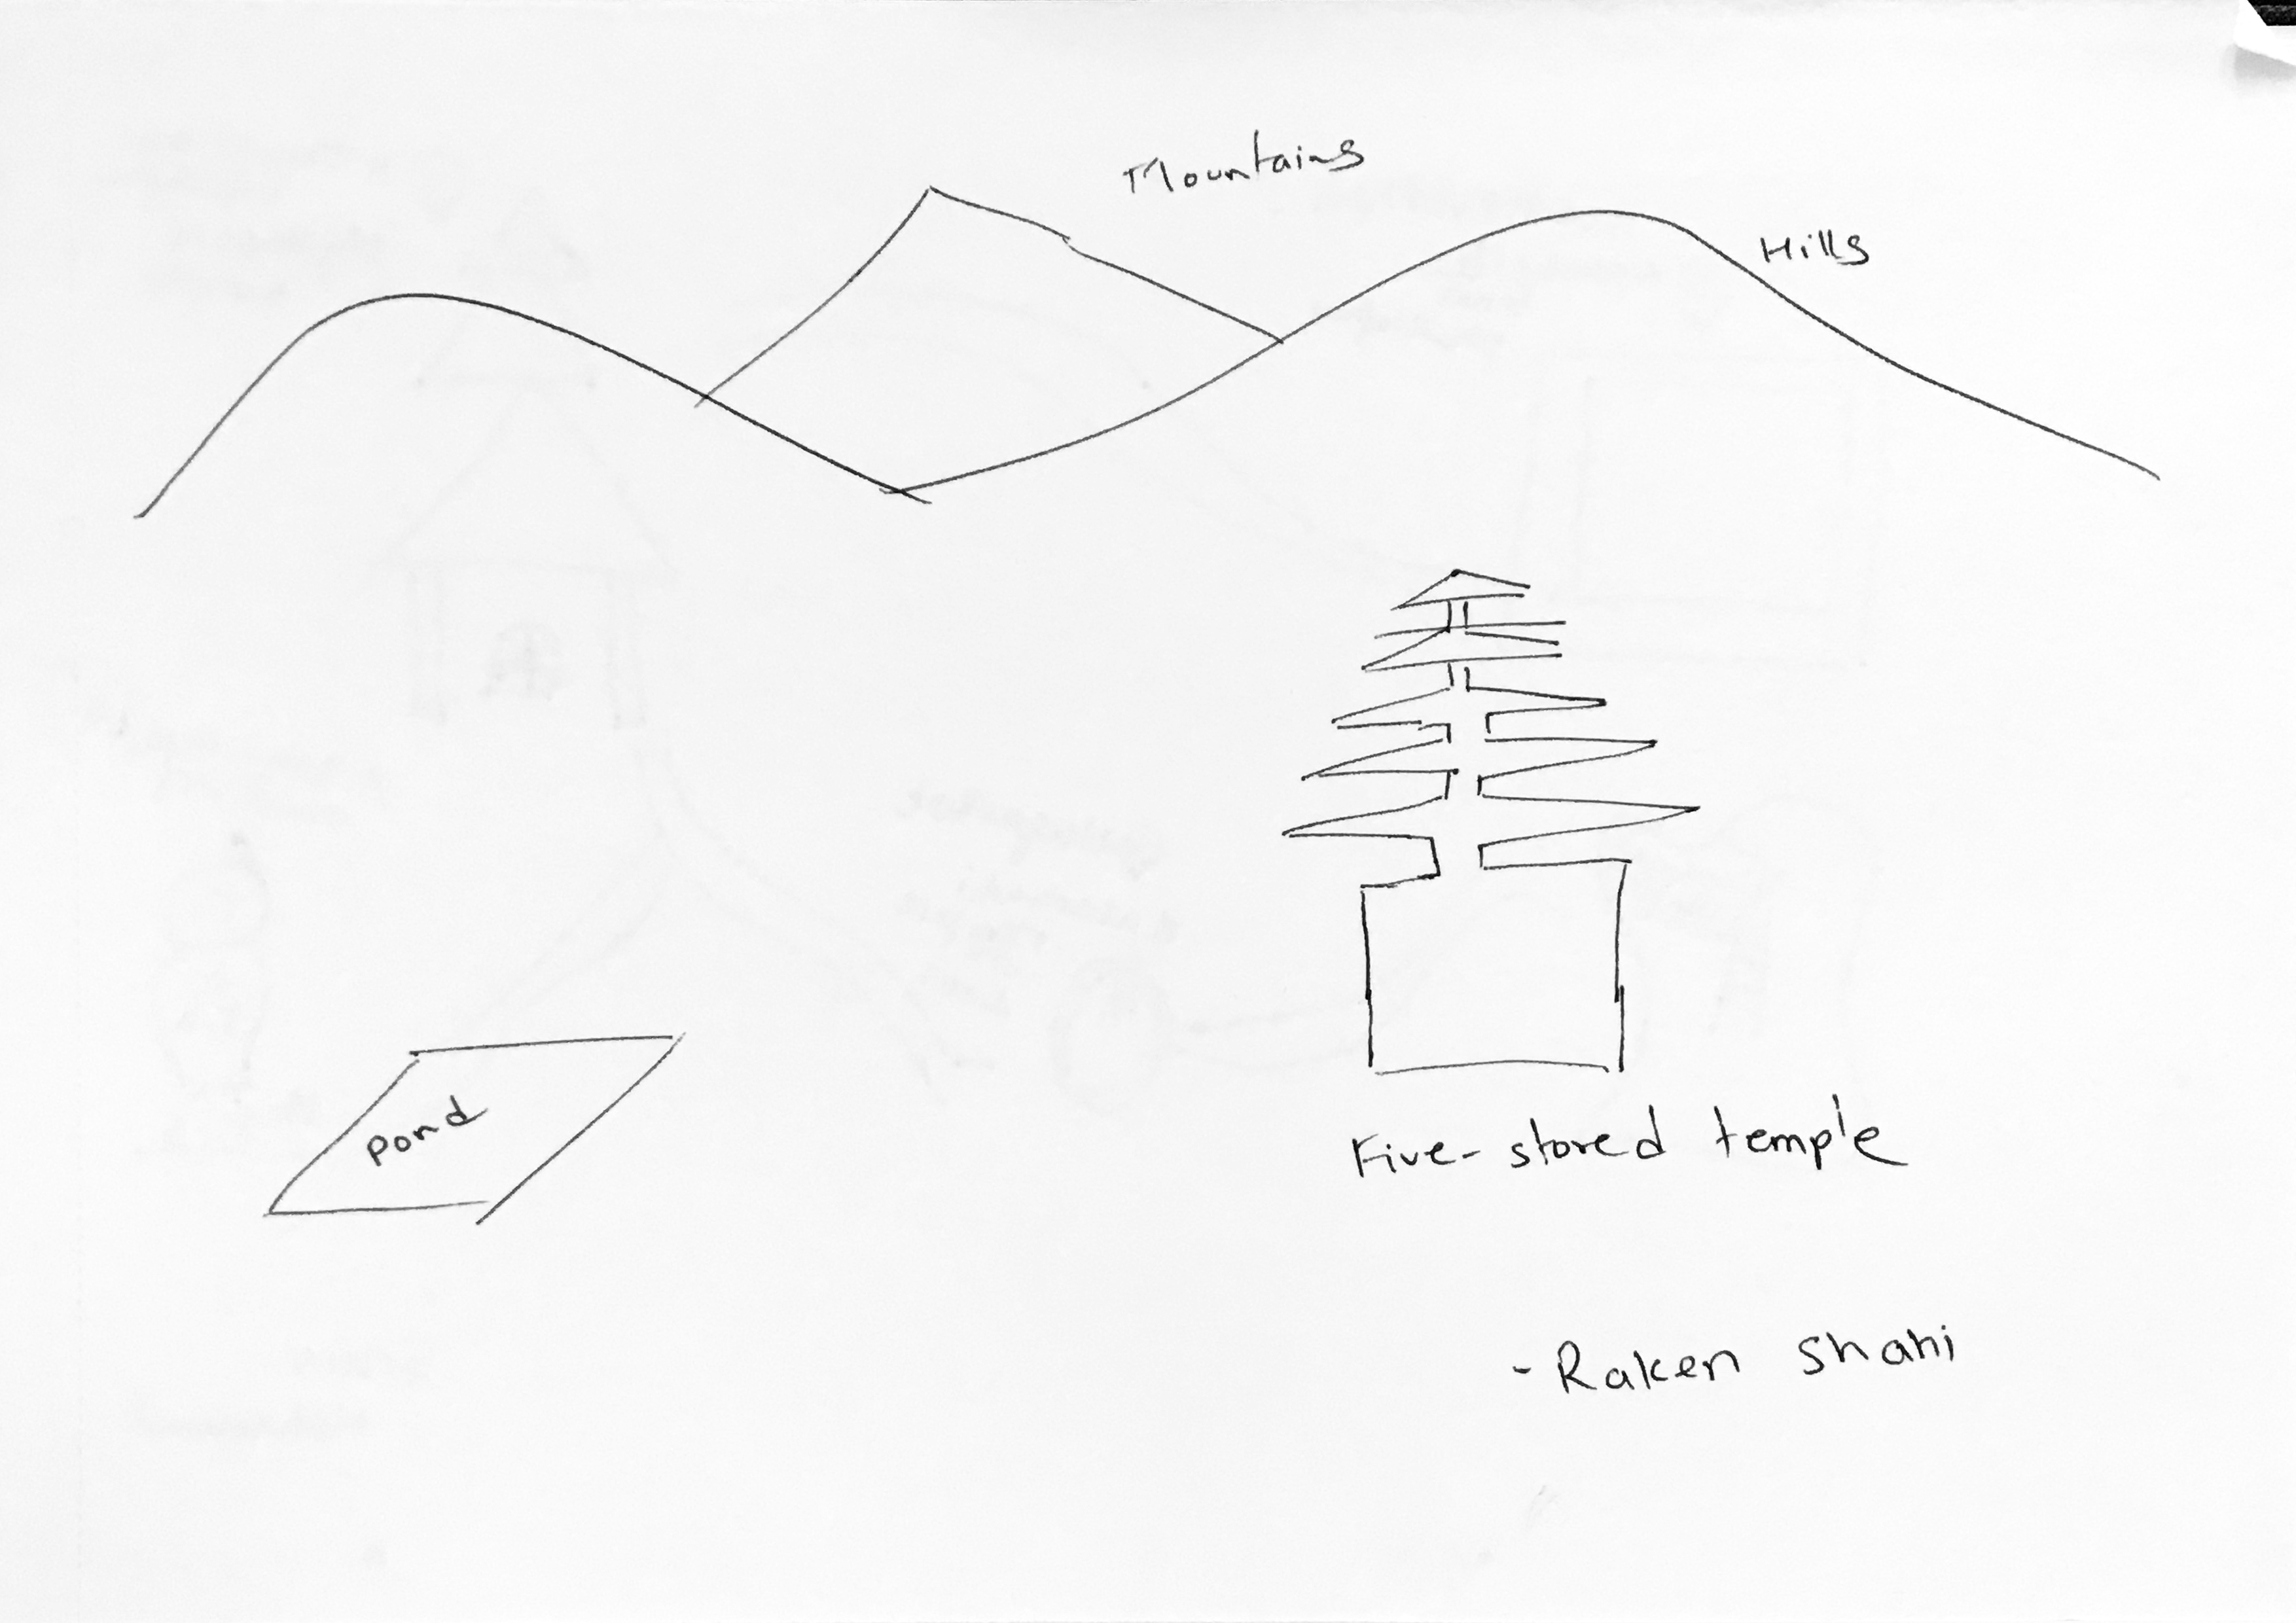 Mountains
Hills
Pond
Five-stored temple
- Raken Shahi